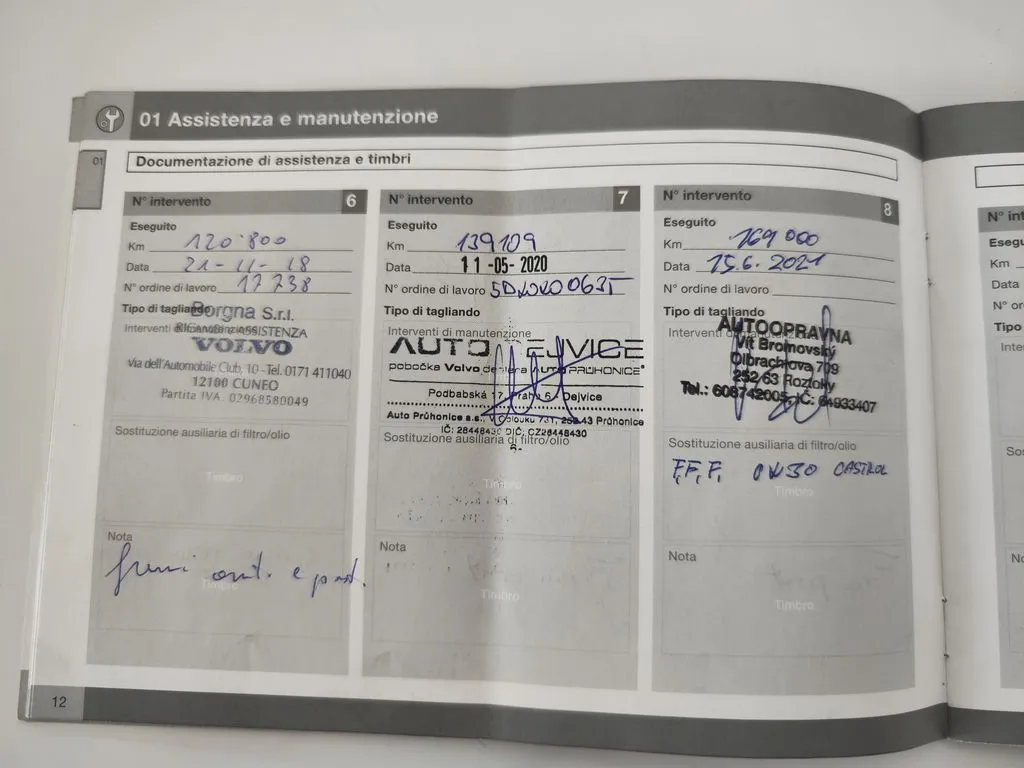 01 Assistenza e manutenzione
01
Documentazione di assistenza e timbri
N° intervento 6
Eseguito
Km 120.800
Data 21-11-18
N° ordine di lavoro 17738
Tipo di tagliando
Borgna S.r.l.
Interventi
ASSISTENZA
VOLVO
Via dell'Automobile Club, 10 - Tel. 0171 411040
12100 CUNEO
Partita IVA. 02968580049
Sostituzione ausiliaria di filtro/olio
Timbro
Nota
e
Timbro
N° intervento 7
Eseguito
Km 139109
Data 11-05-2020
N° ordine di lavoro
Tipo di tagliando
Interventi di manutenzione
AUTO DEJVICE
pobočka Volvo dealera AUTO PRŮHONICE
Podbabská 17, Praha 6 - Dejvice
Auto Průhonice a.s., V Oblouku 731, 252 43 Průhonice
IČ: 26448430 DIČ: CZ26448430
Sostituzione ausiliaria di filtro/olio
6-
Timbro
Nota
Timbro
N° intervento 8
Eseguito
Km 169 000
Data 15.6.2021
N° ordine di lavoro
Tipo di tagliando
Interventi di manutenzione
AUTOOPRAVNA
Vít Bromovský
Olbrachtova 709
252 63 Roztoky
Tel.: 608742005, IČ: 64933407
Sostituzione ausiliaria di filtro/olio
F.F.F. 0W30 CASTROL
Timbro
Nota
Timbro
N° in
Esegu
Km
Data
N° or
Tipo
Inter
Sos
No
12